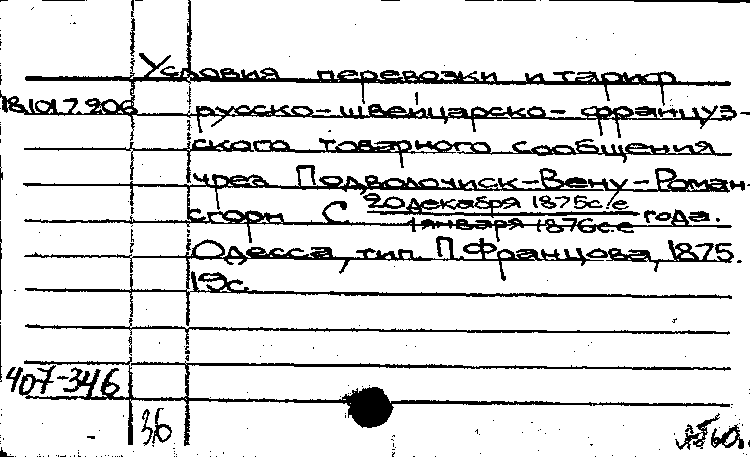 Условия перевозки и тариф
18.101.7.206 русско-швейцарско-француз-
ского товарного сообщения
чрез Подволочиск-Вену-Роман-
сгорн С 20 декабря 1875 с/с года.
1 января 1876 с.с
Одесса, тип. П.Францова, 1875.
19с.
407-346
36